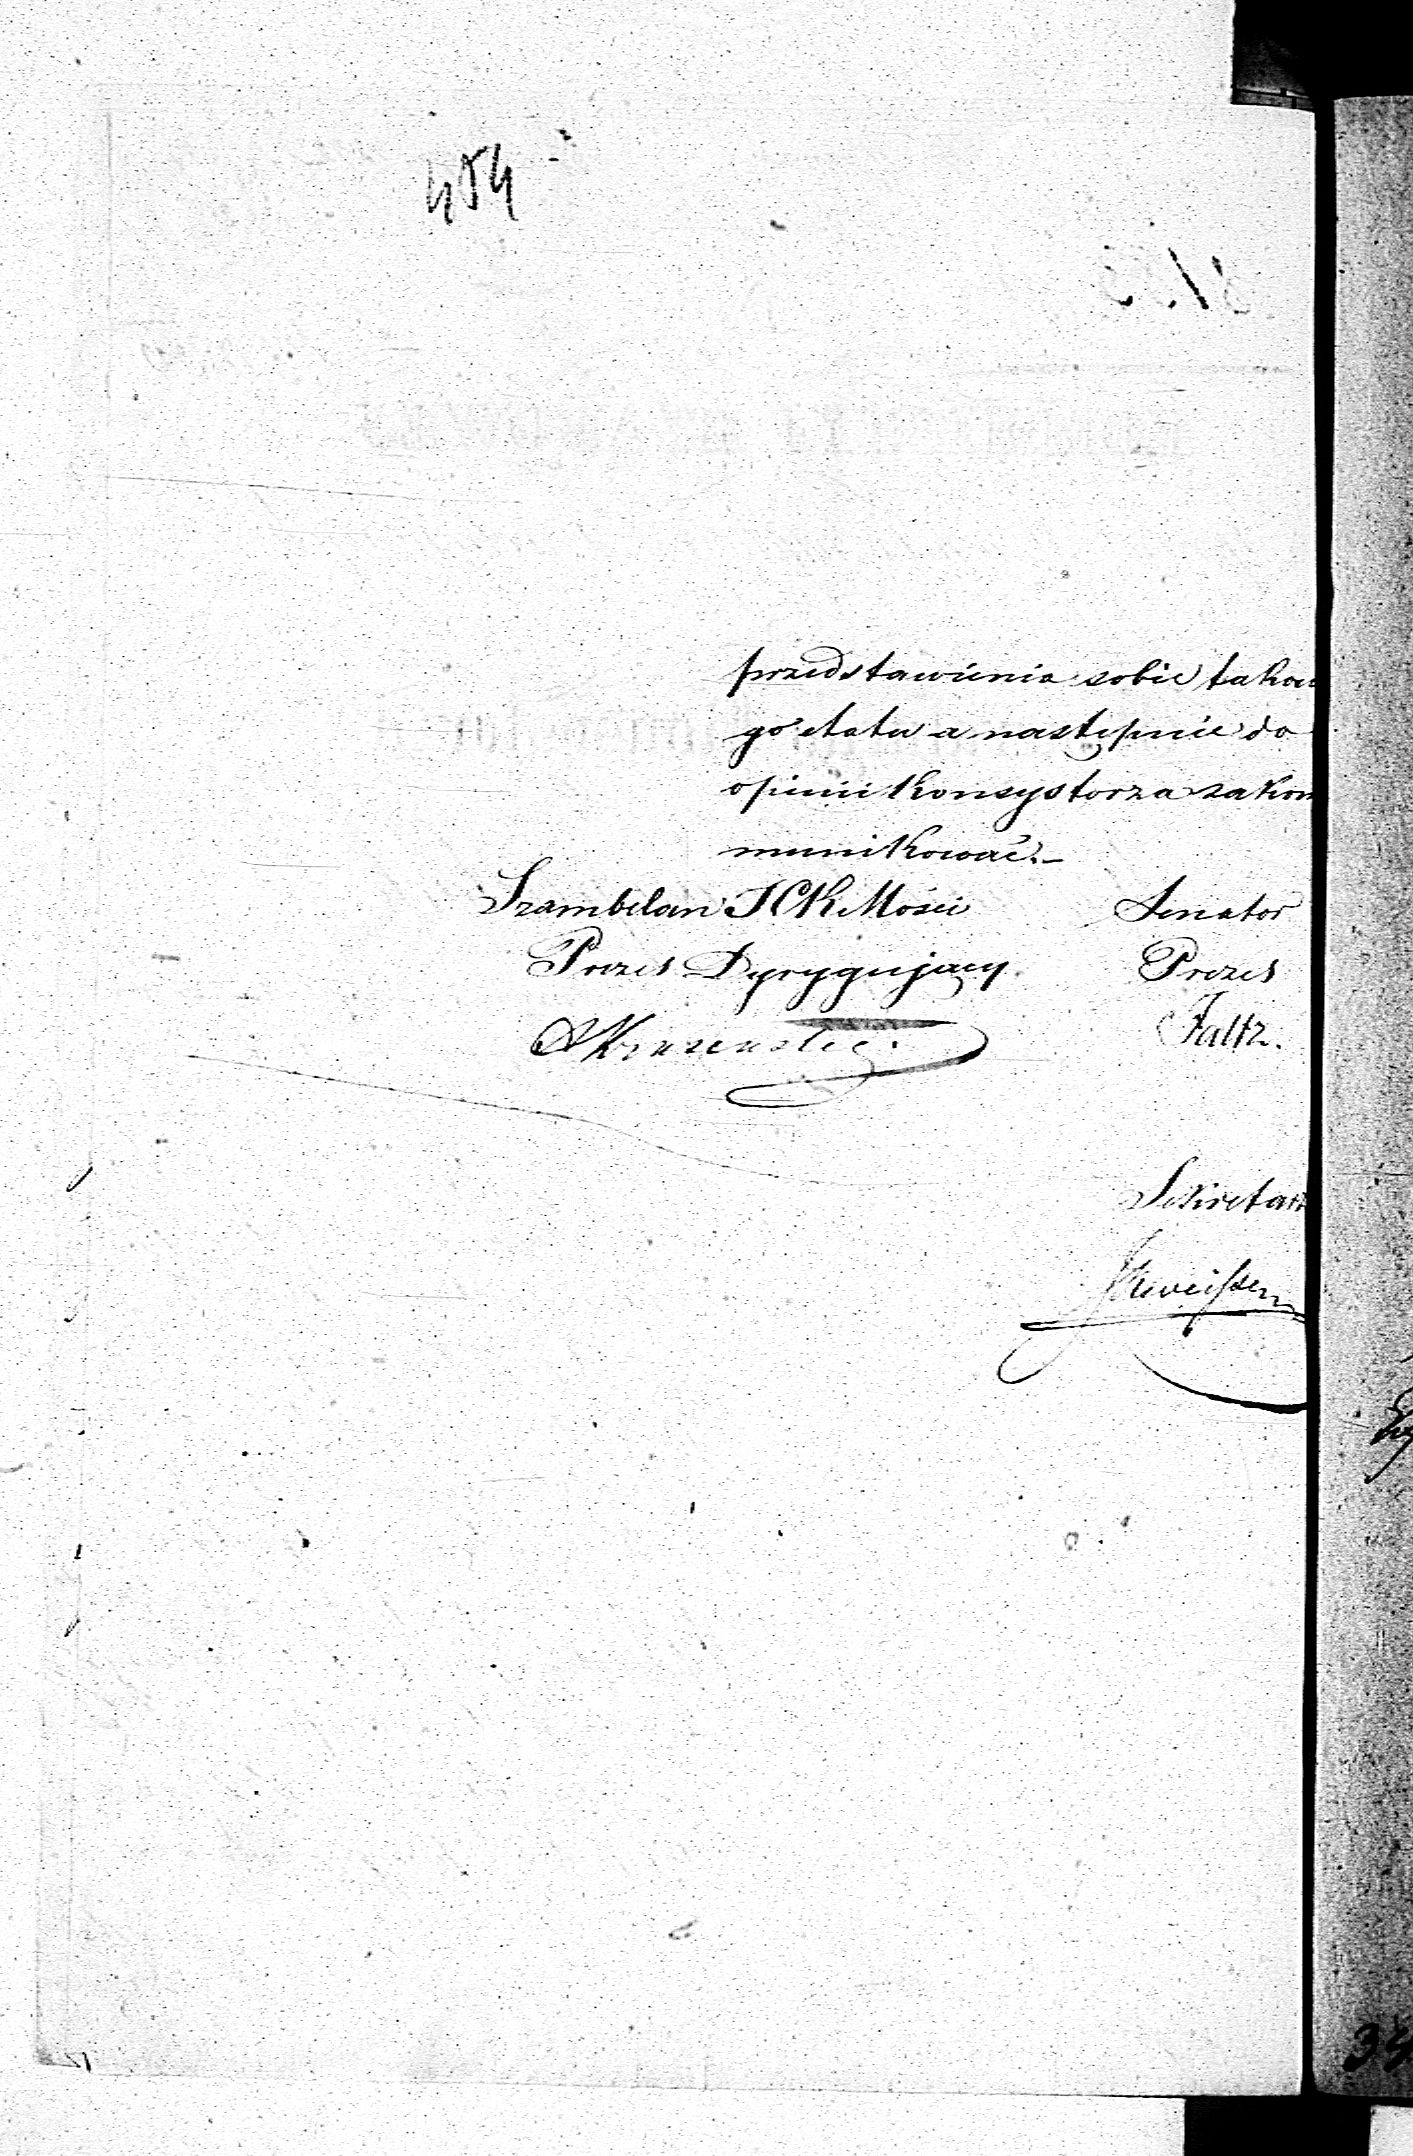 454
przedstawienia sobie takow
go etatu a następnie do
opinii Konsystorza zakom
munikować.–
Szambelan JCKMości Senator
Prezes Dyrygujący Prezes
Faltz.
Sekretarz
34